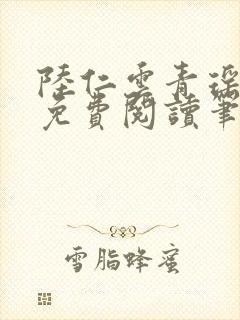 陸仁雲青瑤
免費閱讀筆
雪脂蜂蜜